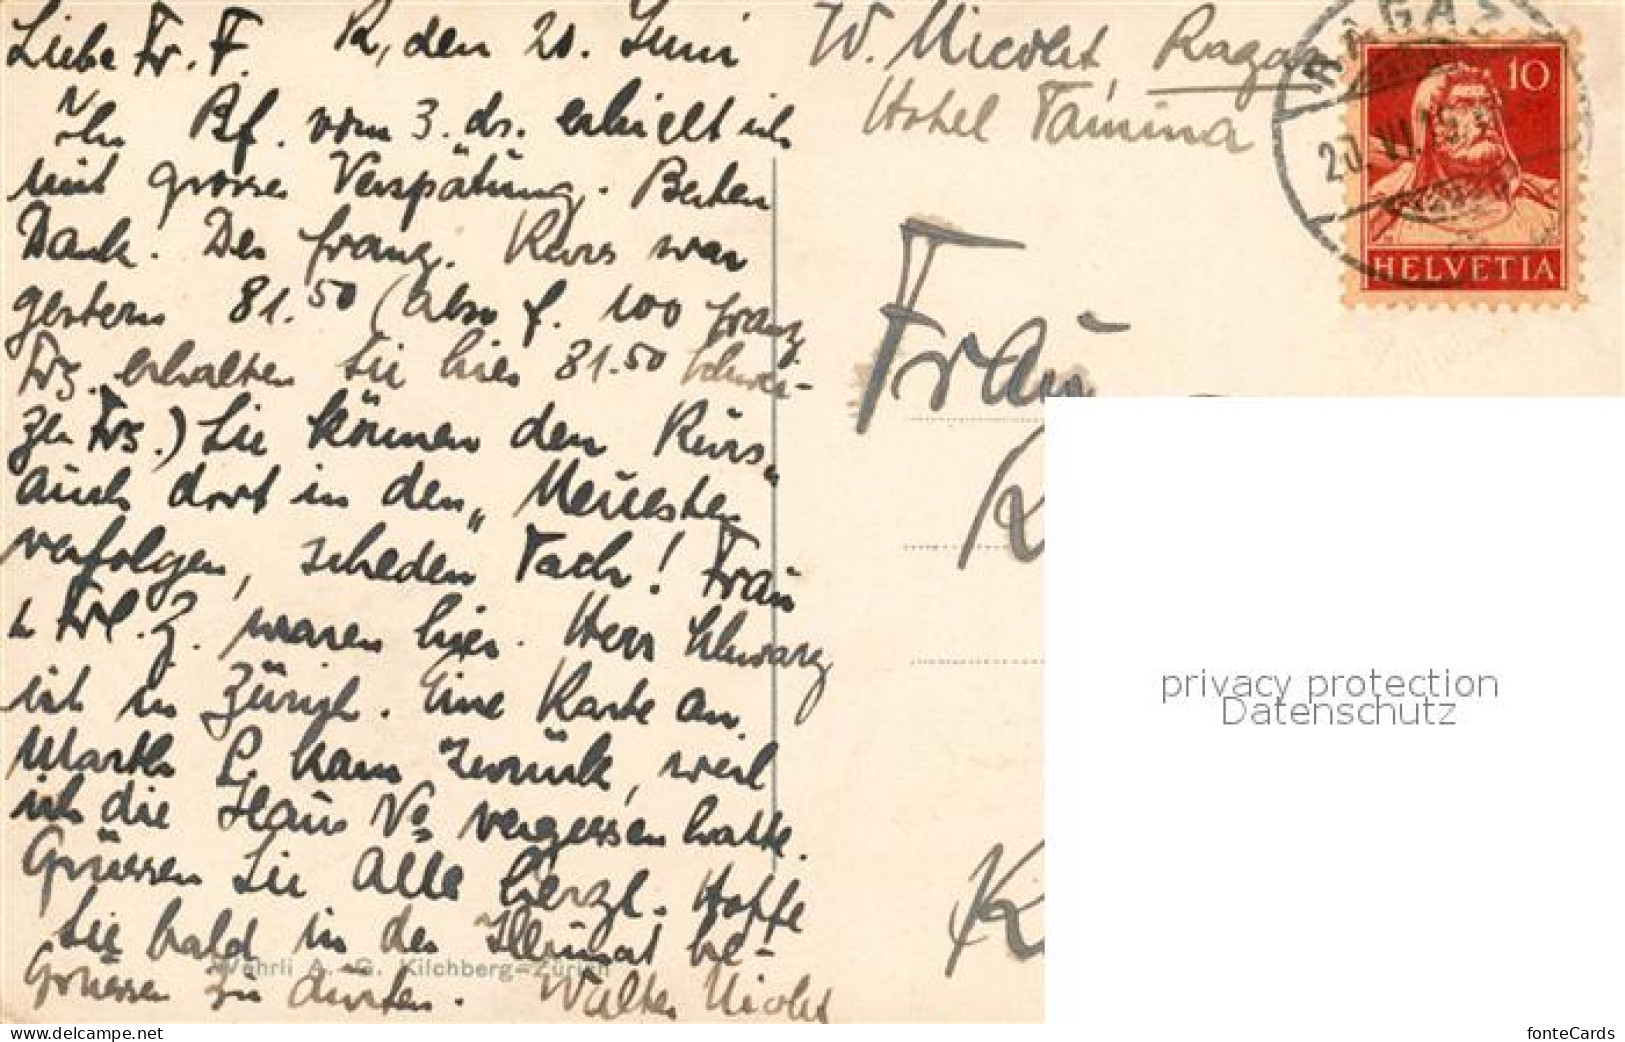 Liebe Fr. F. R, den 20. Juni
Ihr Bf. vom 3. ds. erhielt ich
mit grosser Verspätung. Besten
Dank. Der franz. Kurs war
gestern 81.50 (also f. 100 franz.
Frs. erhalten Sie hier 81.50 Schwei-
zer Frs.) Sie können den Kurs
auch dort in den „Neuesten"
verfolgen, jeden Tach! Frau
u Frl. Z. waren hier. Herr Schwarz
ist in Zürich. Eine Karte an
Martha L. kam zurück, weil
ich die Haus No vergessen hatte.
Grüssen Sie Alle herzl. Hoffe
Sie bald in der Heimat be-
grüssen zu dürfen. Walter Nicolet
Wehrli A.-G. Kilchberg-Zürich
W. Nicolet, Ragaz
Hotel Tamina
RAGAZ
20.VI.19
10
HELVETIA
Frau
K
privacy protection
Datenschutz
www.delcampe.net
fonteCards